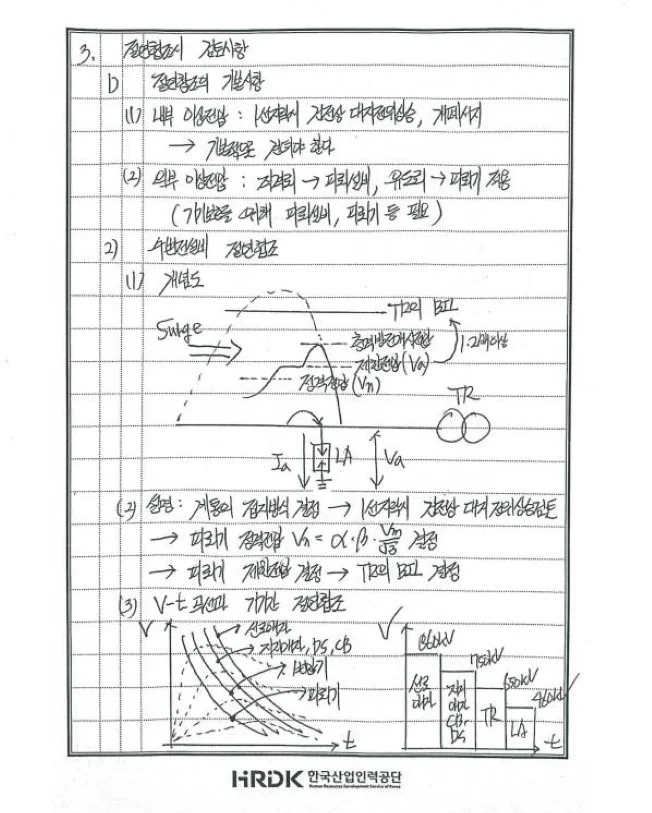 3. 절연협조시 검토사항
1) 절연협조의 기본사항
(1) 내부 이상전압 : 1선지락시 건전상 대지전위상승, 개폐서지
→ 기본적으로 견뎌야 한다
(2) 외부 이상전압 : 직격뢰 → 피뢰설비, 유도뢰 → 피뢰기 적용
(기기보호를 위해 피뢰설비, 피뢰기 등 필요)
2) 수변전설비 절연협조
(1) 개념도
TR의 BIL
Surge
충격방전개시전압
1.2배이상
제한전압(Va)
정격전압(Vn)
TR
Ia
LA
Va
(2) 설명 : 계통의 접지방식 결정 → 1선지락시 건전상 대지전위상승검토
→ 피뢰기 정격전압 Vn = α·β·Vm/√3 결정
→ 피뢰기 제한전압 결정 → TR의 BIL 결정
(3) V-t 곡선과 기기간 절연협조
V
선로애자
지지애자, DS, CB
변압기
피뢰기
t
V
860kV
선로
애자
750kV
지지
애자
CB,
DS
650kV
TR
460kV
LA
t
HRDK 한국산업인력공단
Human Resources Development Service of Korea